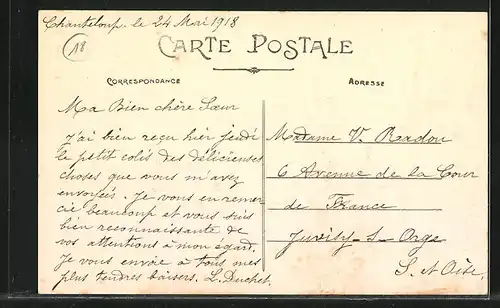 Chanteloup le 24 Mai 1918
18
CARTE POSTALE
CORRESPONDANCE
ADRESSE
Ma Bien chère Sœur
J'ai bien reçu hier jeudi
le petit colis des délicieuses
choses que vous m'avez
envoyées. Je vous en remer
cie beaucoup et vous suis
bien reconnaissante de
vos attentions à mon égard.
Je vous envoie à tous mes
plus tendres baisers. L. Duchet.
Madame V. Radou
6 Avenue de la Cour
de France
Juvisy-s-Orge
S. et Oise.